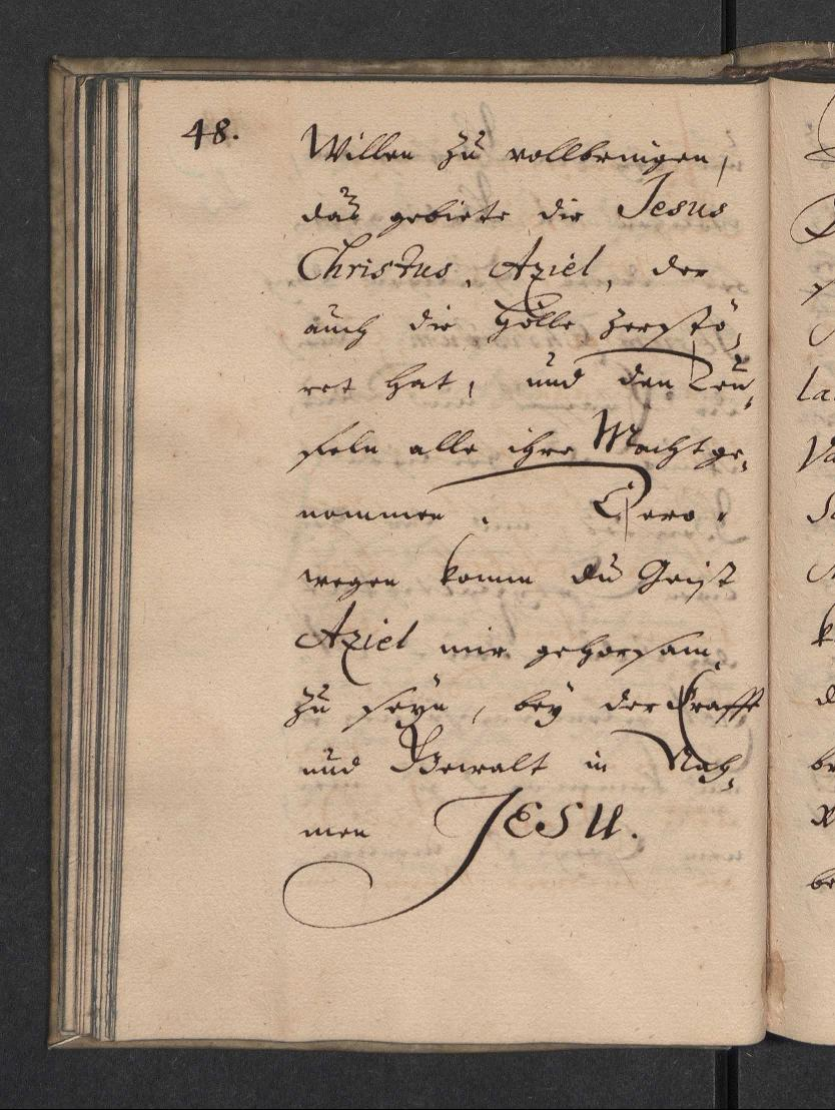 48.
Willen zu vollbringen,
das gebiete dir Jesus
Christus, Aziel, der
auch die Hölle zerstö-
ret hat, und den Teu-
feln alle ihre Macht ge-
nommen. Dero-
wegen komm du Geist
Aziel mir gehorsam
zu seyn, bey der Krafft
und Gewalt in Nah-
men JESU.
la
k
d
be
be